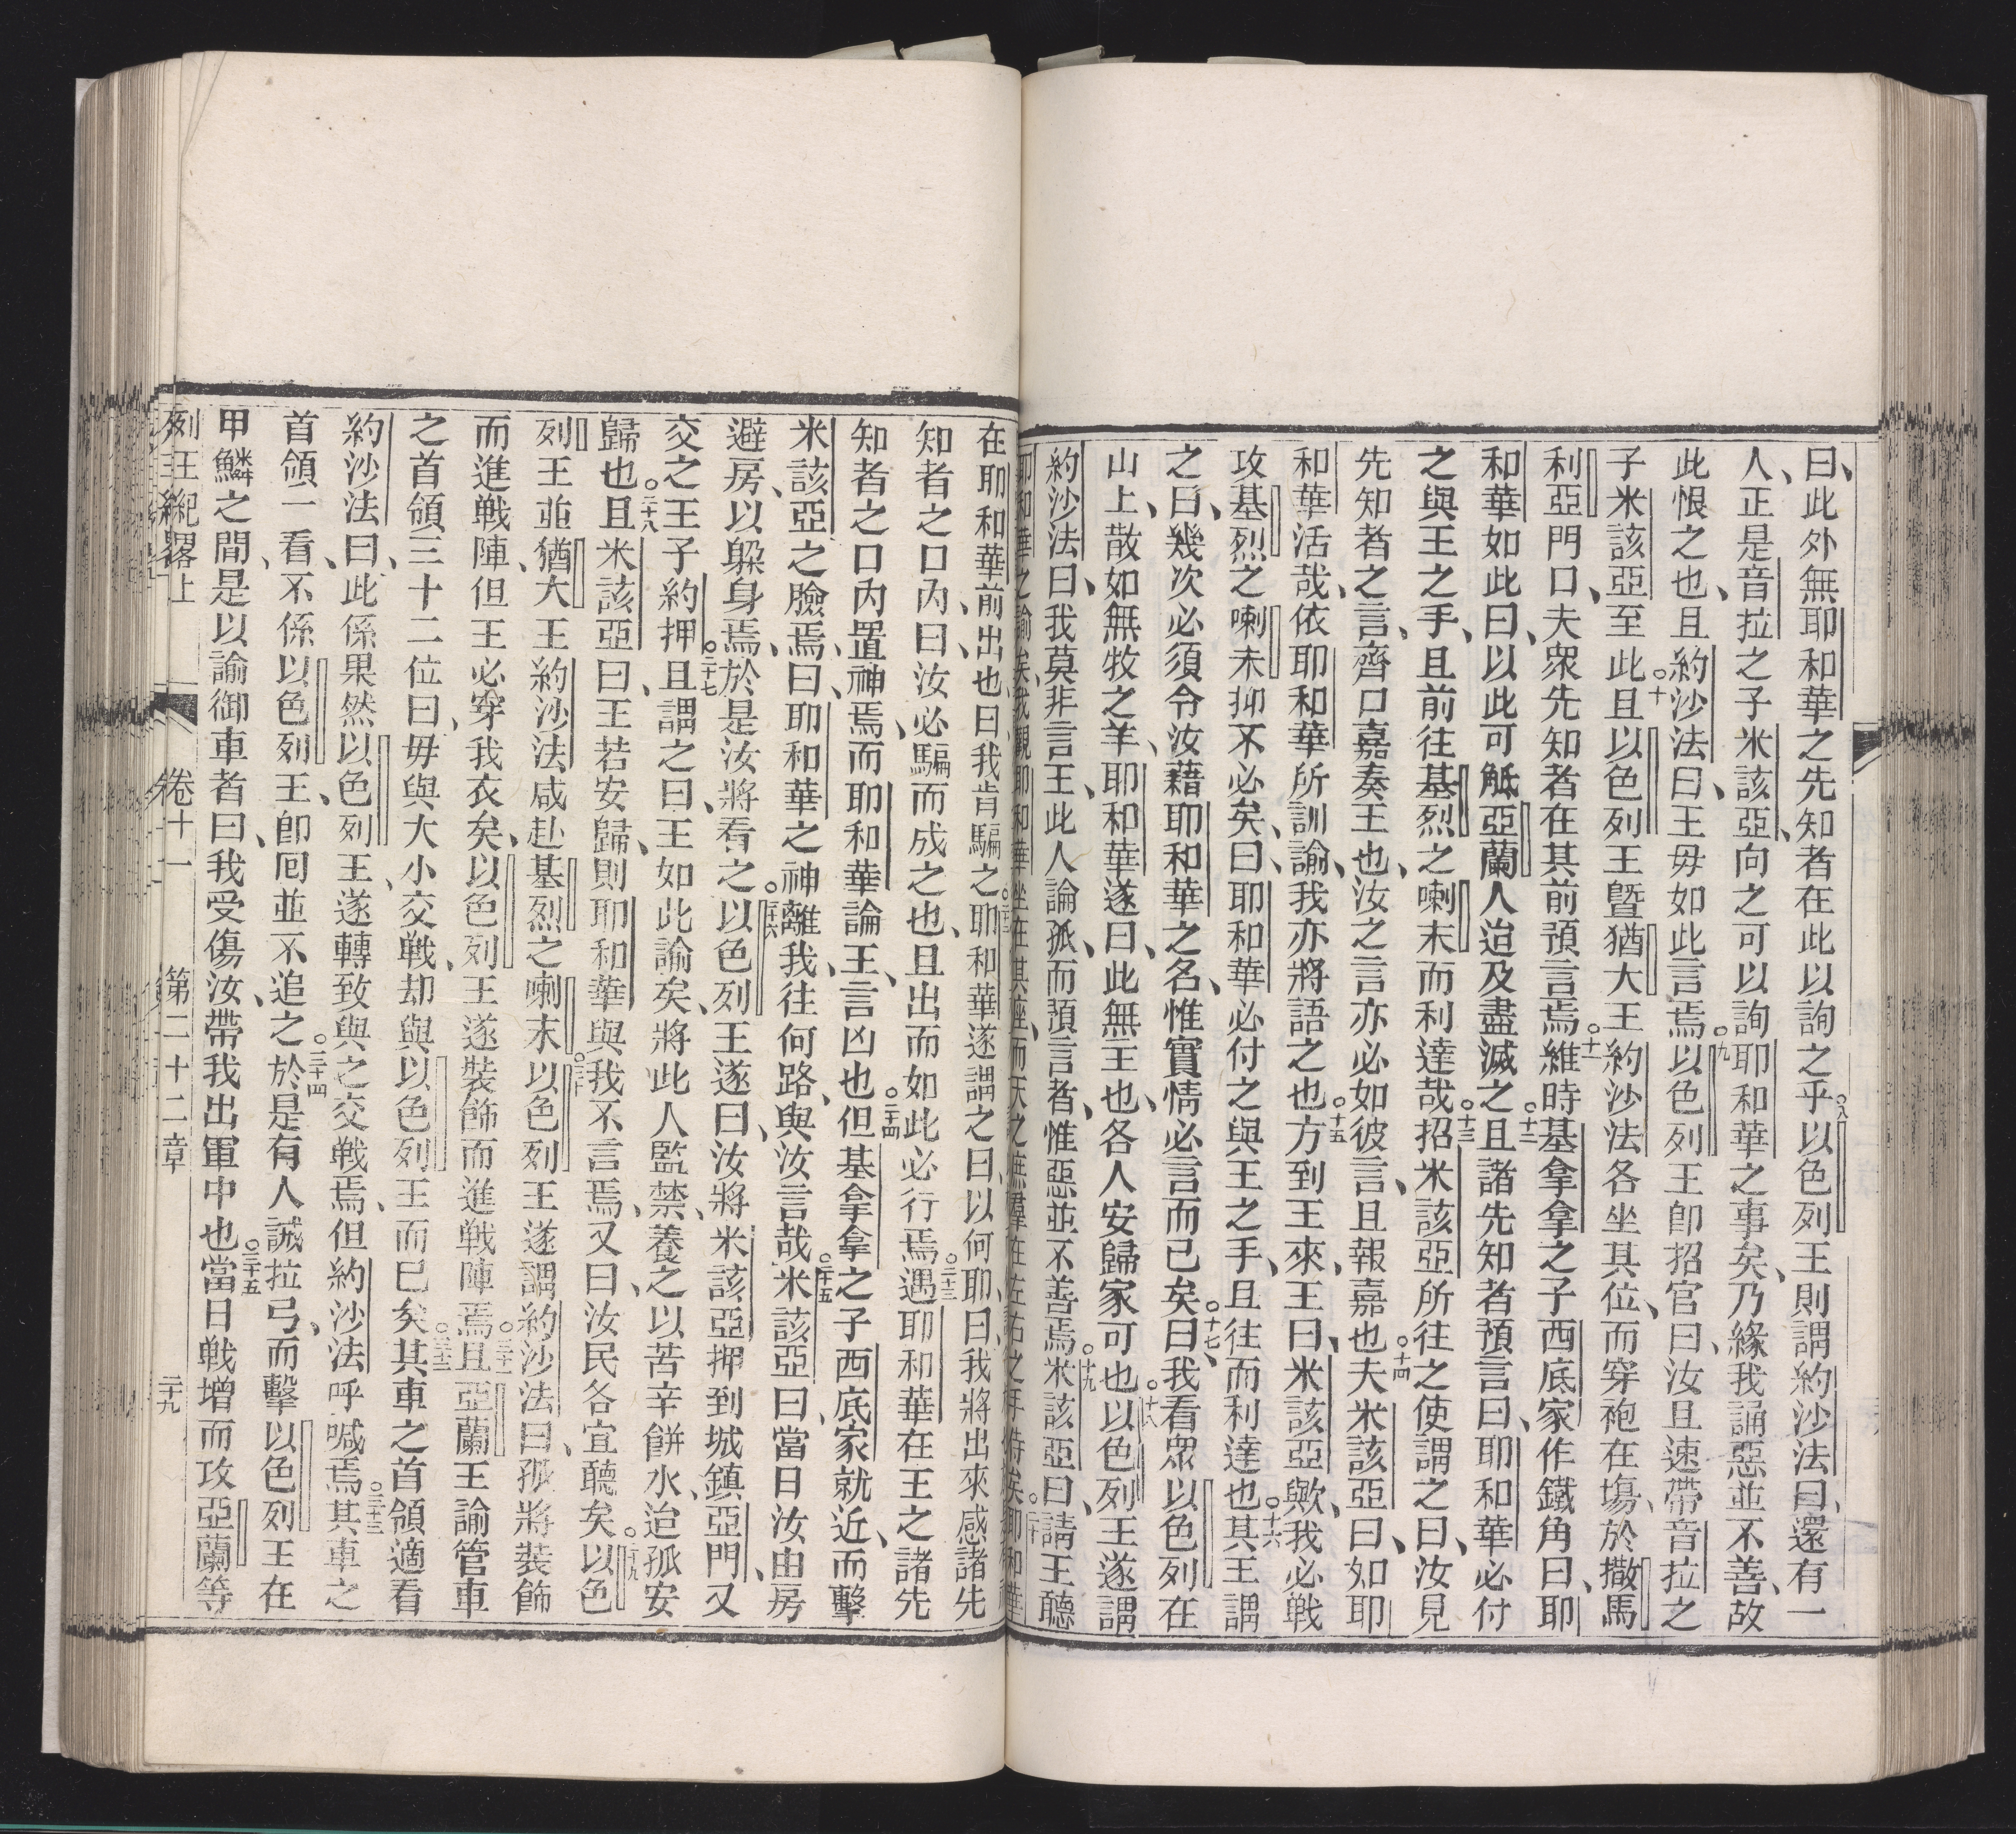 曰、此外無耶和華之先知者在此以詢之乎○八以色列王則謂約沙法曰、還有一
人、正是音拉之子米該亞、向之可以詢耶和華之事矣、乃緣我誦惡並不善、故
此恨之也、且約沙法曰、王毋如此言焉○九以色列王卽招官曰、汝且速帶音拉之
子米該亞至此○十且以色列王曁猶大王約沙法各坐其位、而穿袍在塲、於撒馬
利亞門口、夫衆先知者在其前預言焉○十一維時基拿拿之子西底家作鐵角曰、耶
和華如此曰、以此可觝亞蘭人迨及盡滅之○十二且諸先知者預言曰、耶和華必付
之與王之手、且前往基烈之喇末而利達哉○十三招米該亞所往之使謂之曰、汝見
先知者之言、齊口嘉奏王也、汝之言亦必如彼言、且報嘉也○十四夫米該亞曰、如耶
和華活哉、依耶和華所訓諭、我亦將語之也○十五方到王來、王曰、米該亞歟、我必戰
攻基烈之喇未抑不必矣、曰、耶和華必付之與王之手、且往而利達也○十六其王謂
之曰、幾次必須令汝藉耶和華之名、惟實情必言而已矣○十七曰、我看衆以色列在
山上、散如無牧之羊、耶和華遂曰、此無王也、各人安歸家可也○十八以色列王遂謂
約沙法曰、我莫非言王、此人論孤、而預言者、惟惡並不善焉○十九米該亞曰、請王聽
耶和華之諭矣、我觀耶和華坐在其座、而天之庶羣在左右之手侍矣○二十耶和華
在耶和華前出也、曰、我肯騙之○二十二耶和華遂謂之曰、以何耶、曰、我將出來感諸先
知者之口內、曰、汝必騙而成之也、且出而如此必行焉○二十三遇耶和華在王之諸先
知者之口內置神焉、而耶和華論王、言凶也○二十四但基拿拿之子西底家就近、而擊
米該亞之臉焉、曰、耶和華之神離我、往何路、與汝言哉○二十五米該亞曰、當日汝由房
避房、以躲身焉、於是汝將看之○二十六以色列王遂曰、汝將米該亞押到城鎮亞門、又
交之王子約押○二十七且謂之曰、王如此諭矣、將此人監禁、養之以苦辛餅水、迨孤安
歸也○二十八且米該亞曰、王若安歸、則耶和華與我不言焉、又曰、汝民各宜聽矣○二十九以色
列王並猶大王約沙法咸赴基烈之喇末○三十以色列王遂謂約沙法曰、孤將裝飾
而進戰陣、但王必穿我衣矣、以色列王遂裝飾而進戰陣焉○三十一且亞蘭王諭管車
之首領三十二位曰、毋與大小交戰、却與以色列王而已矣○三十二其車之首領適看
約沙法曰、此係果然以色列王、遂轉致與之交戰焉、但約沙法呼喊焉○三十三其車之
首領一看、不係以色列王、卽囘並不追之○三十四於是有人誠拉弓、而擊以色列王在
甲鱗之間、是以諭御車者曰、我受傷汝、帶我出軍中也○三十五當日戰增而攻亞蘭等
列王紀畧上　卷十一　第二十二章　二十九